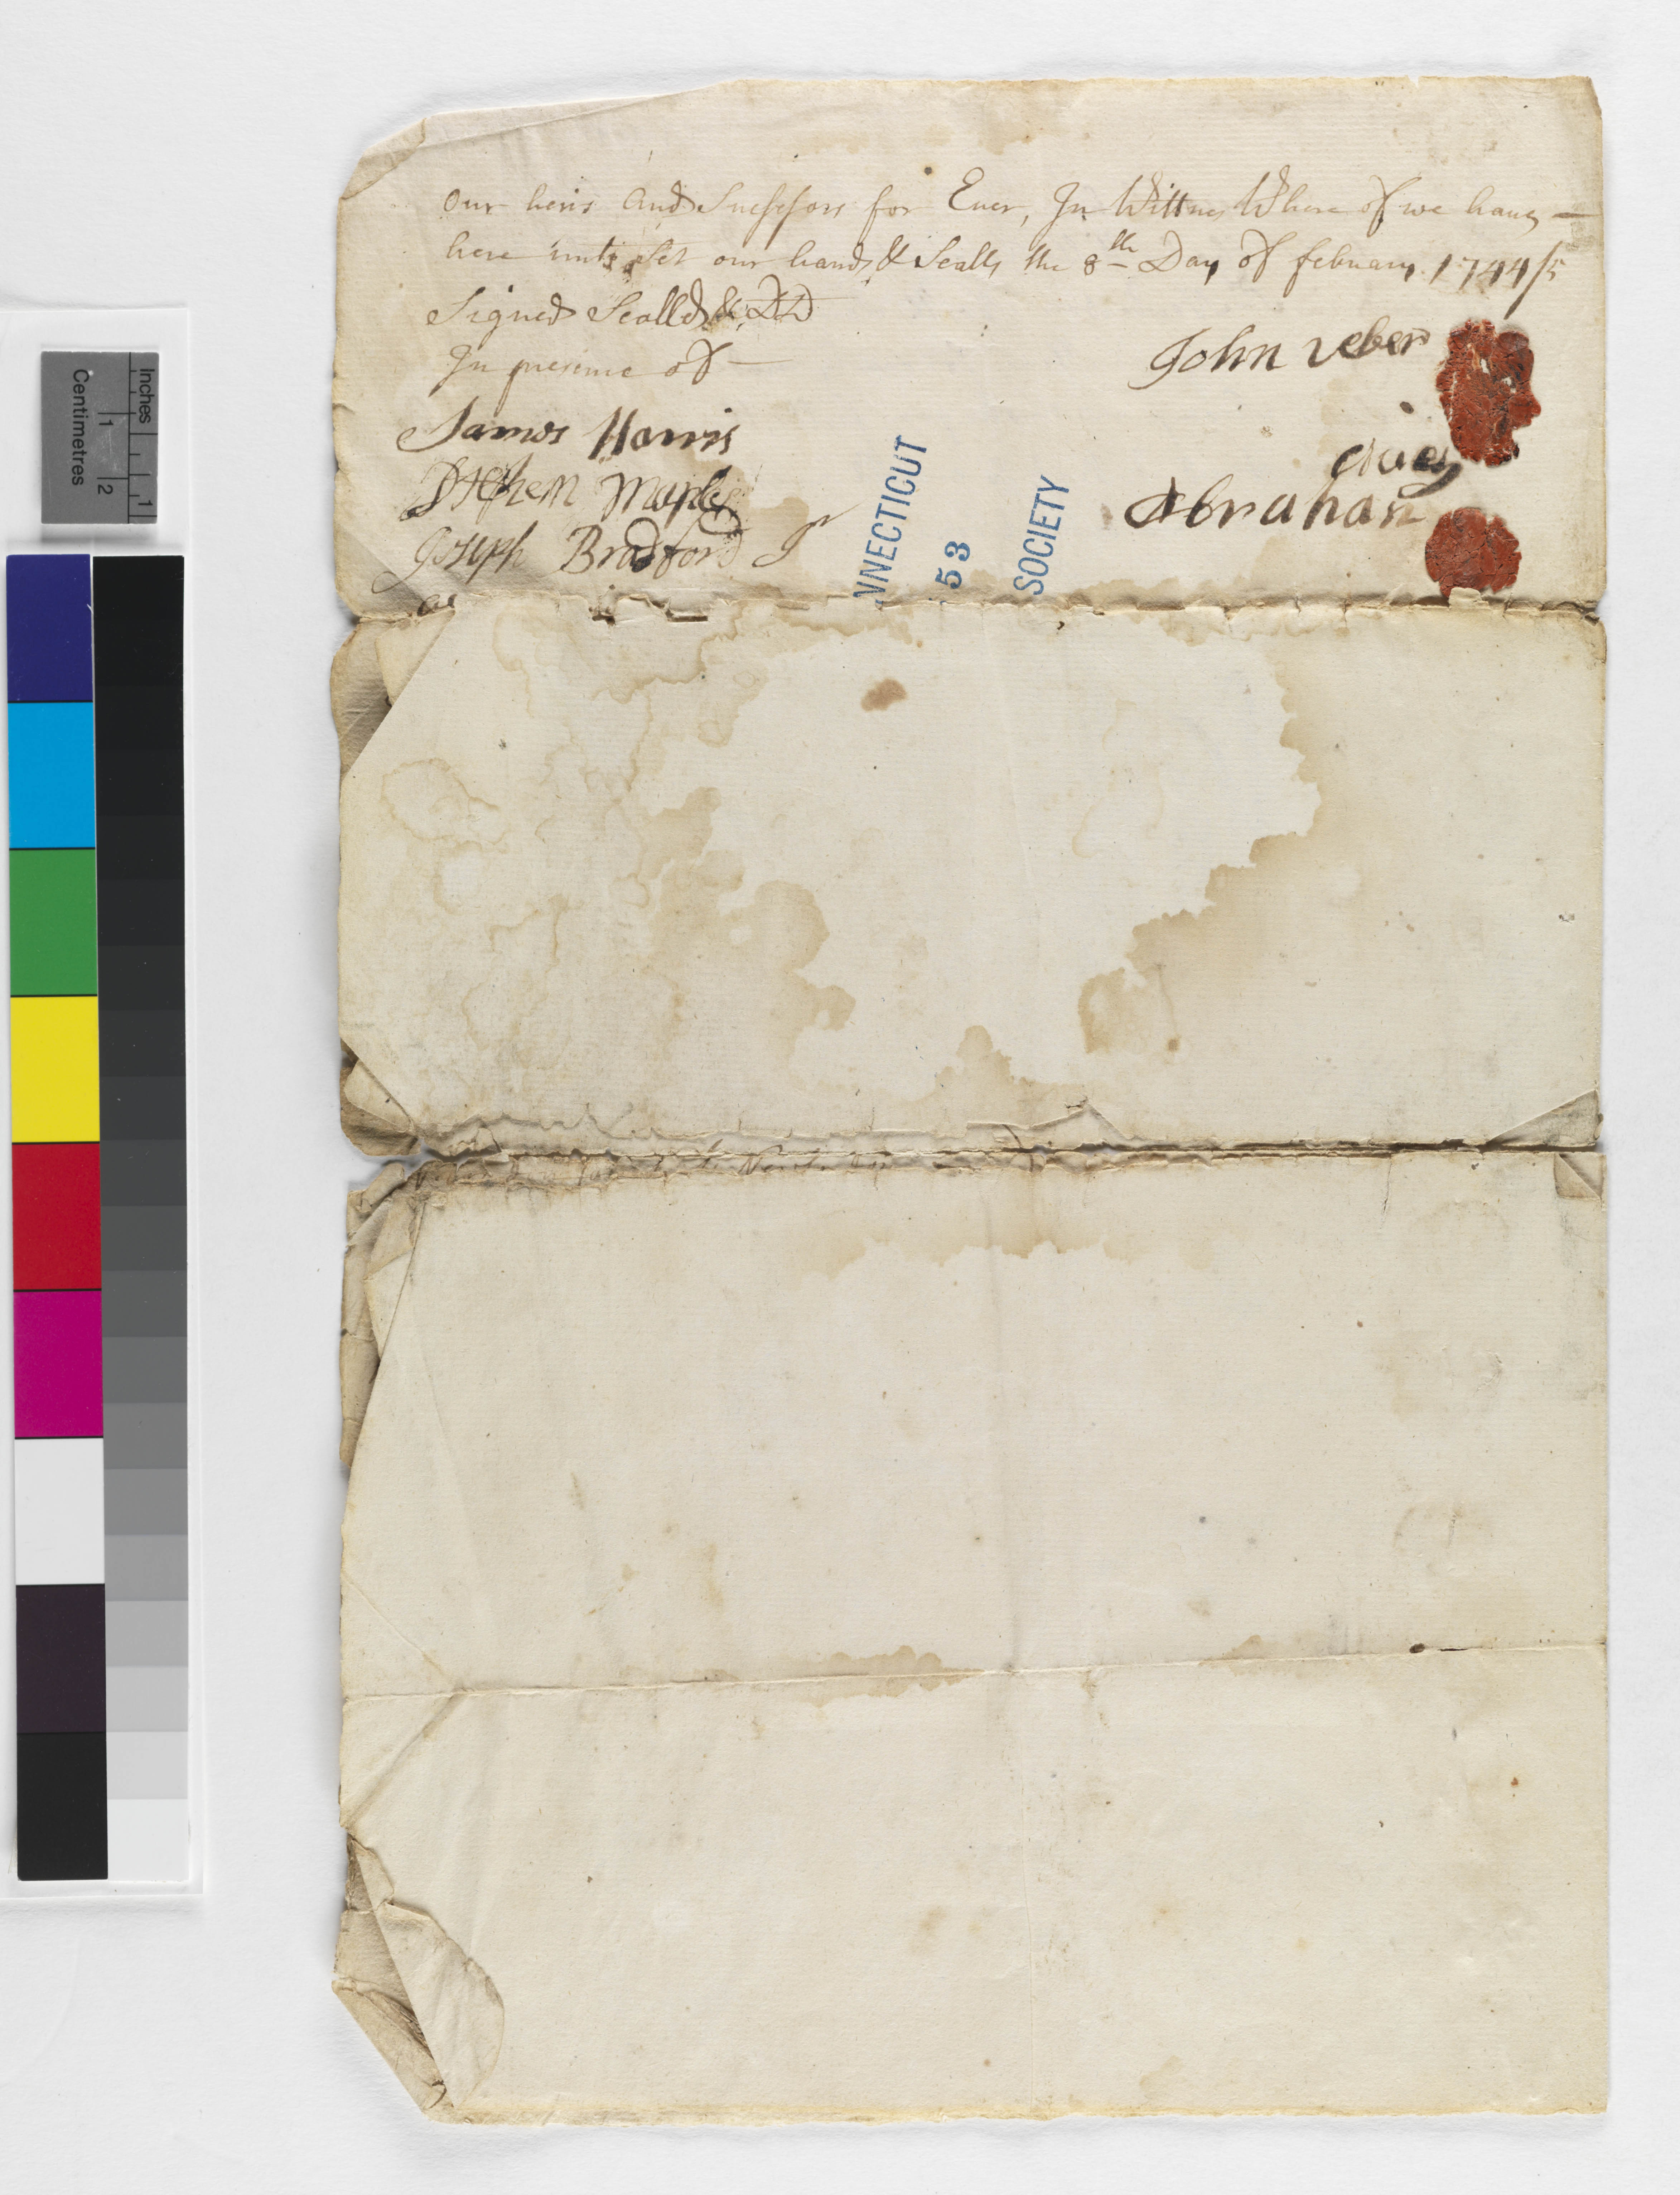 our heirs and Sucessors for Ever, In Wittnes Where of we have
here unto Set our hands & Sealls the 8th Day of february 1744/5
Signed Sealled & DD
In presence of
James Harris
Stephen Maples
Joseph Bradford Jr
John Veber
Abraham
CONNECTICUT
53
SOCIETY
Inches
1
Centimetres
1
2